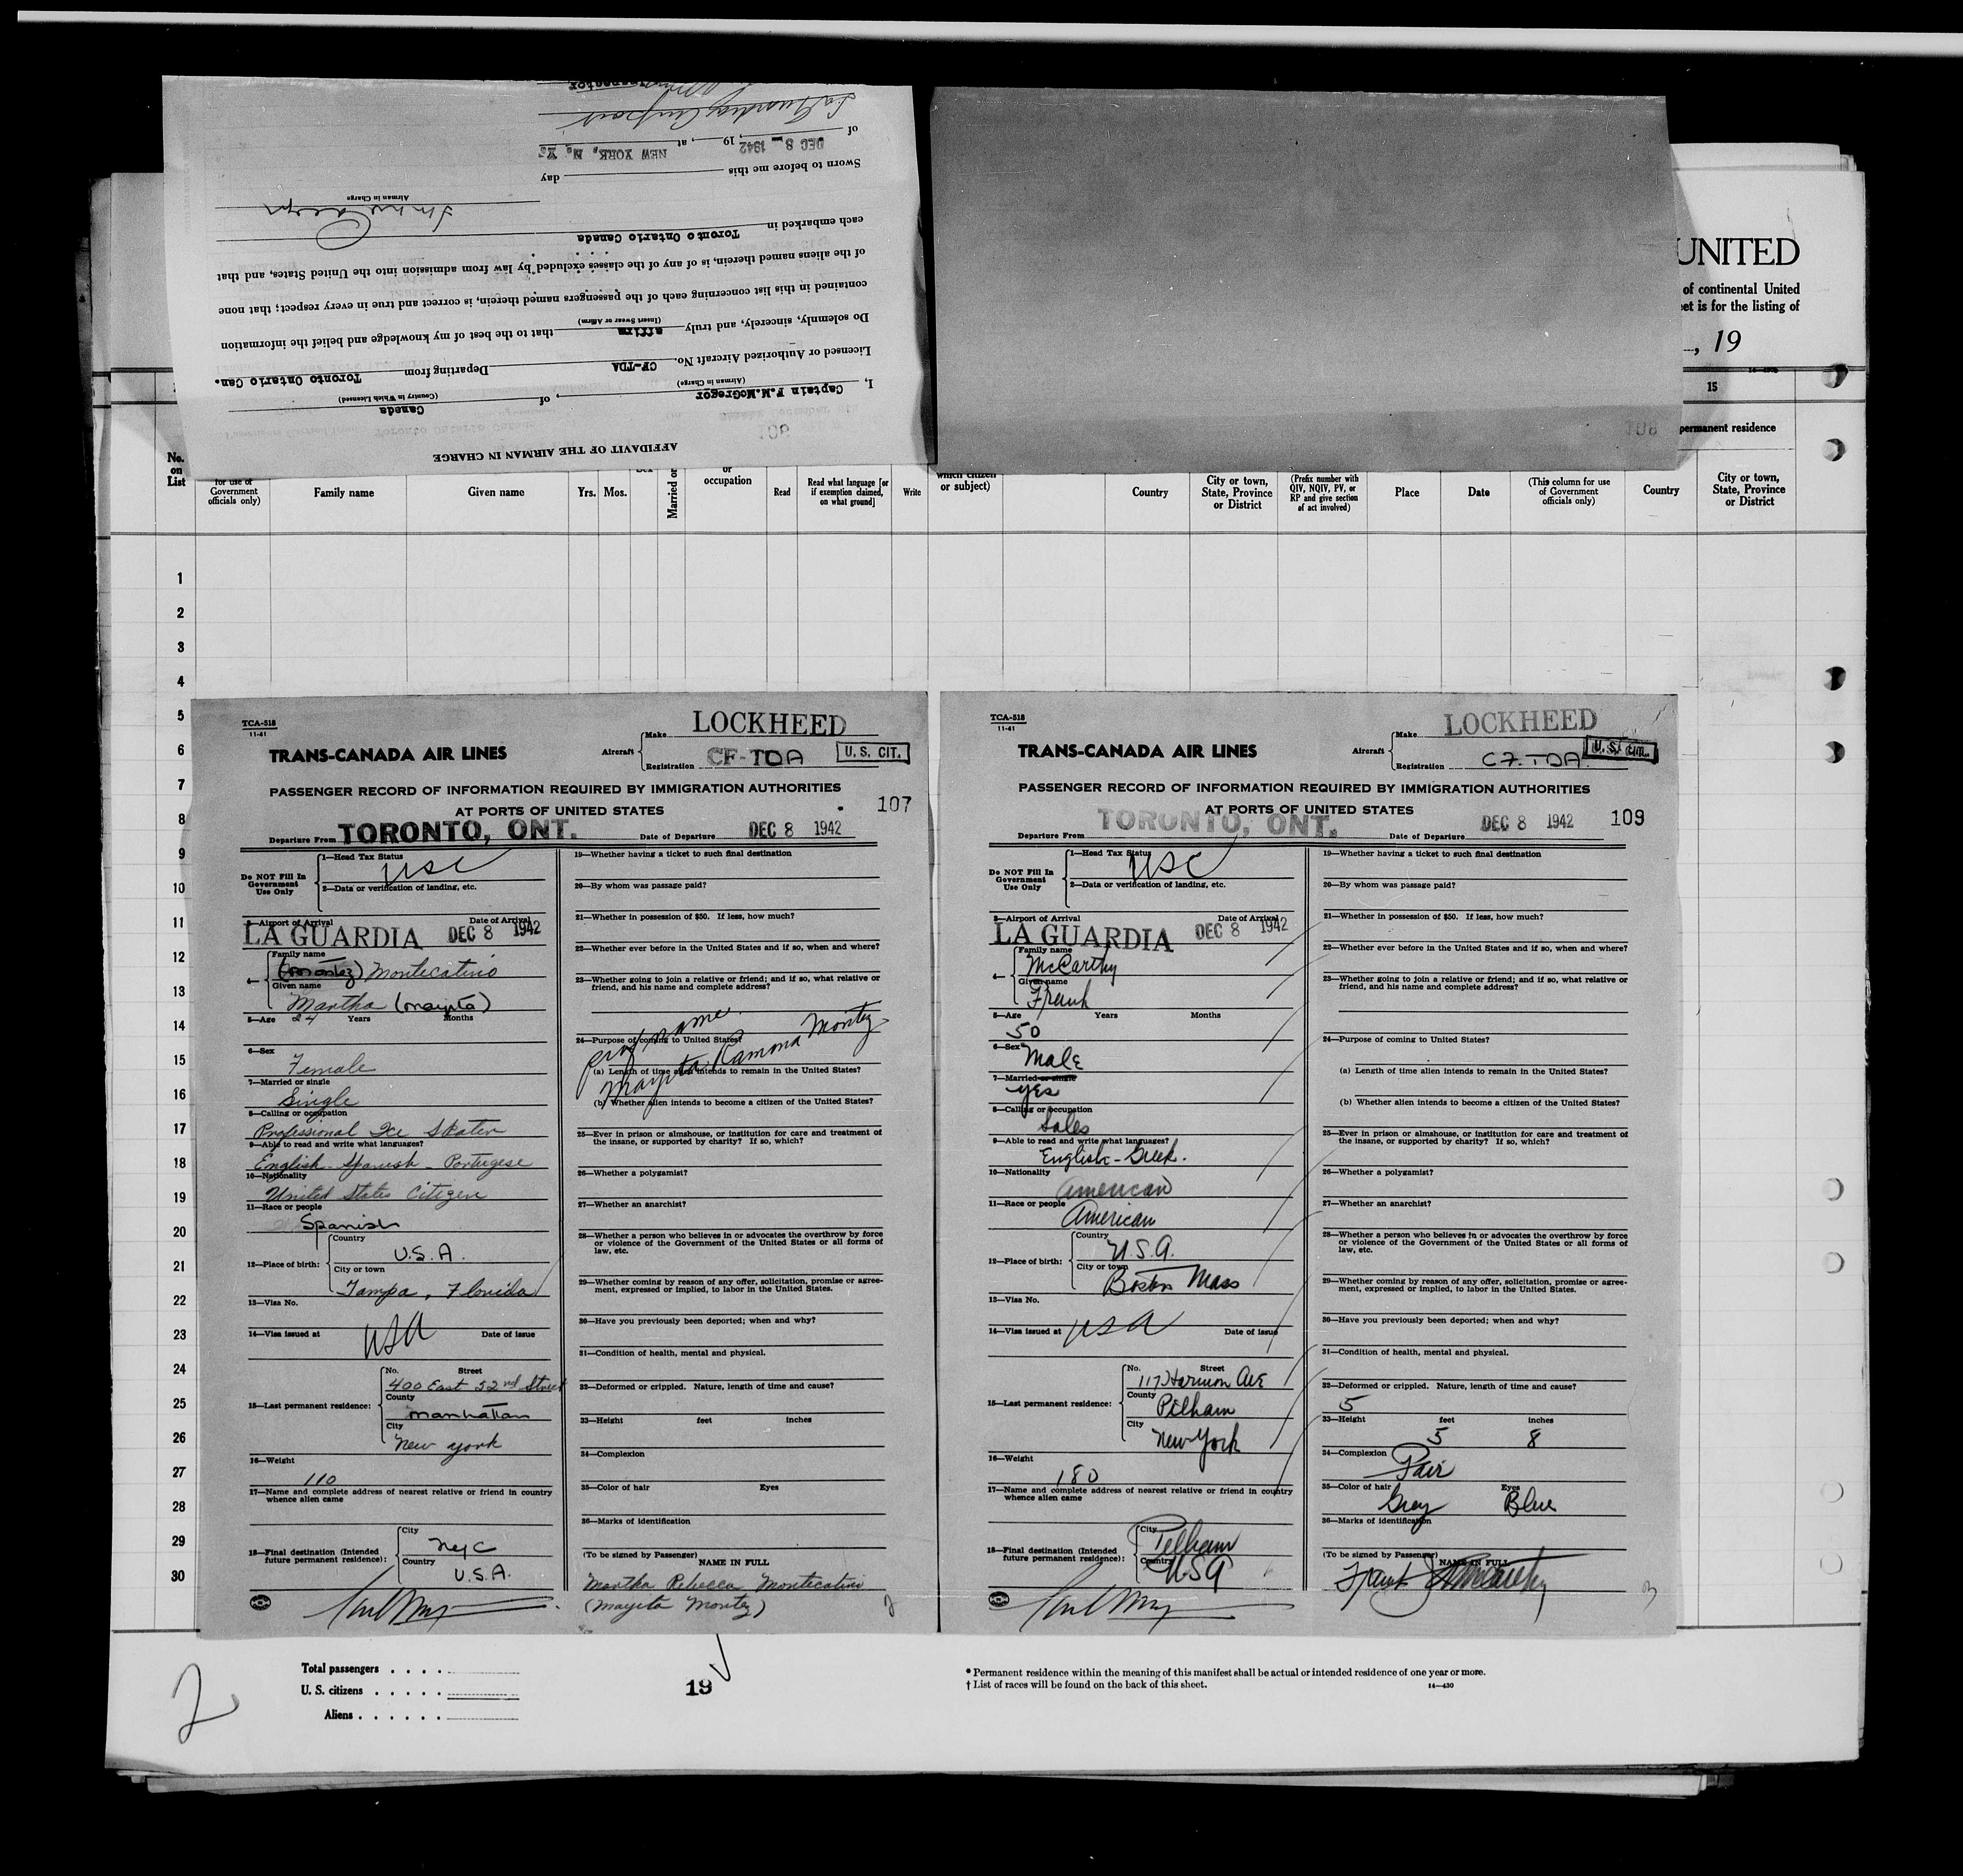 AFFIDAVIT OF THE AIRMAN IN CHARGE
I, Captain F.M.McGregor, of Canada
(Airman in Charge) (Country in Which Licensed)
Licensed or Authorized Aircraft No. CF-TDA Departing from Toronto Ontario Can.
Do solemnly, sincerely, and truly affirm that to the best of my knowledge and belief the information
(Insert Swear or Affirm)
contained in this list concerning each of the passengers named therein, is correct and true in every respect; that none
of the aliens named therein, is of any of the classes excluded by law from admission into the United States, and that
each embarked in Toronto Ontario Canada
Airman in Charge
Sworn to before me this day
of DEC 8 - 1942, 19, at NEW YORK, N. Y.
La Guardia Airport
Inspector
108
UNITED
of continental United
eet is for the listing of
, 19
15
108
permanent residence
No.
on
List
for use of
Government
officials only)
Family name
Given name
Yrs. Mos.
Married or
or
occupation
Read
Read what language [or
if exemption claimed,
on what ground]
Write
which citizen
or subject)
Country
City or town,
State, Province
or District
(Prefix number with
QIV, NQIV, PV, or
RP and give section
of act involved)
Place
Date
(This column for use
of Government
officials only)
Country
City or town,
State, Province
or District
1
2
3
4
5
6
7
8
9
10
11
12
13
14
15
16
17
18
19
20
21
22
23
24
25
26
27
28
29
30
TCA-518
11-41
TRANS-CANADA AIR LINES
Aircraft
Make LOCKHEED
Registration CF-TDA
U. S. CIT.
PASSENGER RECORD OF INFORMATION REQUIRED BY IMMIGRATION AUTHORITIES
AT PORTS OF UNITED STATES
107
Departure From TORONTO, ONT. Date of Departure DEC 8 1942
Do NOT Fill In
Government
Use Only
1—Head Tax Status
USC
2—Data or verification of landing, etc.
3—Airport of Arrival Date of Arrival
LA GUARDIA DEC 8 1942
4—
Family name
(Montez) Montecatino
Given name
Martha (Mayita)
5—Age 24 Years Months
6—Sex
Female
7—Married or single
Single
8—Calling or occupation
Professional Ice Skater
9—Able to read and write what languages?
English - Spanish - Portugese
10—Nationality
United States Citizen
11—Race or people
Spanish
12—Place of birth:
Country
U.S.A.
City or town
Tampa, Florida
13—Visa No.
14—Visa issued at USA Date of issue
15—Last permanent residence:
No. Street
400 East 52nd Street
County
Manhattan
City
New York
16—Weight
110
17—Name and complete address of nearest relative or friend in country
whence alien came
18—Final destination (Intended
future permanent residence):
City
NYC
Country
U.S.A.
19—Whether having a ticket to such final destination
20—By whom was passage paid?
21—Whether in possession of $50. If less, how much?
22—Whether ever before in the United States and if so, when and where?
23—Whether going to join a relative or friend; and if so, what relative or
friend, and his name and complete address?
24—Purpose of coming to United States?
prof name
Mayita Ramona Montez
(a) Length of time alien intends to remain in the United States?
(b) Whether alien intends to become a citizen of the United States?
25—Ever in prison or almshouse, or institution for care and treatment of
the insane, or supported by charity? If so, which?
26—Whether a polygamist?
27—Whether an anarchist?
28—Whether a person who believes in or advocates the overthrow by force
or violence of the Government of the United States or all forms of
law, etc.
29—Whether coming by reason of any offer, solicitation, promise or agree-
ment, expressed or implied, to labor in the United States.
30—Have you previously been deported; when and why?
31—Condition of health, mental and physical.
32—Deformed or crippled. Nature, length of time and cause?
33—Height feet inches
34—Complexion
35—Color of hair Eyes
36—Marks of identification
(To be signed by Passenger)
NAME IN FULL
Martha Rebecca Montecatino
(Mayita Montez)
2
TCA-518
11-41
TRANS-CANADA AIR LINES
Aircraft
Make LOCKHEED
Registration CF-TDA
U. S. CIT.
PASSENGER RECORD OF INFORMATION REQUIRED BY IMMIGRATION AUTHORITIES
AT PORTS OF UNITED STATES
109
Departure From TORONTO, ONT. Date of Departure DEC 8 1942
Do NOT Fill In
Government
Use Only
1—Head Tax Status
USC
2—Data or verification of landing, etc.
3—Airport of Arrival Date of Arrival
LA GUARDIA DEC 8 1942
4—
Family name
McCarthy
Given name
Frank
5—Age Years Months
50
6—Sex
Male
7—Married or single
yes
8—Calling or occupation
Sales
9—Able to read and write what languages?
English - Greek.
10—Nationality
American
11—Race or people
American
12—Place of birth:
Country
U.S.A.
City or town
Boston Mass
13—Visa No.
14—Visa issued at USA Date of issue
15—Last permanent residence:
No. Street
117 Harmon Ave
County
Pelham
City
New York
16—Weight
180
17—Name and complete address of nearest relative or friend in country
whence alien came
18—Final destination (Intended
future permanent residence):
City
Pelham
Country
USA
19—Whether having a ticket to such final destination
20—By whom was passage paid?
21—Whether in possession of $50. If less, how much?
22—Whether ever before in the United States and if so, when and where?
23—Whether going to join a relative or friend; and if so, what relative or
friend, and his name and complete address?
24—Purpose of coming to United States?
(a) Length of time alien intends to remain in the United States?
(b) Whether alien intends to become a citizen of the United States?
25—Ever in prison or almshouse, or institution for care and treatment of
the insane, or supported by charity? If so, which?
26—Whether a polygamist?
27—Whether an anarchist?
28—Whether a person who believes in or advocates the overthrow by force
or violence of the Government of the United States or all forms of
law, etc.
29—Whether coming by reason of any offer, solicitation, promise or agree-
ment, expressed or implied, to labor in the United States.
30—Have you previously been deported; when and why?
31—Condition of health, mental and physical.
32—Deformed or crippled. Nature, length of time and cause?
5
33—Height feet inches
5 8
34—Complexion
Fair
35—Color of hair Eyes
Gray Blue
36—Marks of identification
(To be signed by Passenger)
NAME IN FULL
Frank McCarthy
3
Total passengers . . . .
U. S. citizens . . . . .
Aliens . . . . . .
2
19
* Permanent residence within the meaning of this manifest shall be actual or intended residence of one year or more.
† List of races will be found on the back of this sheet.
14—430